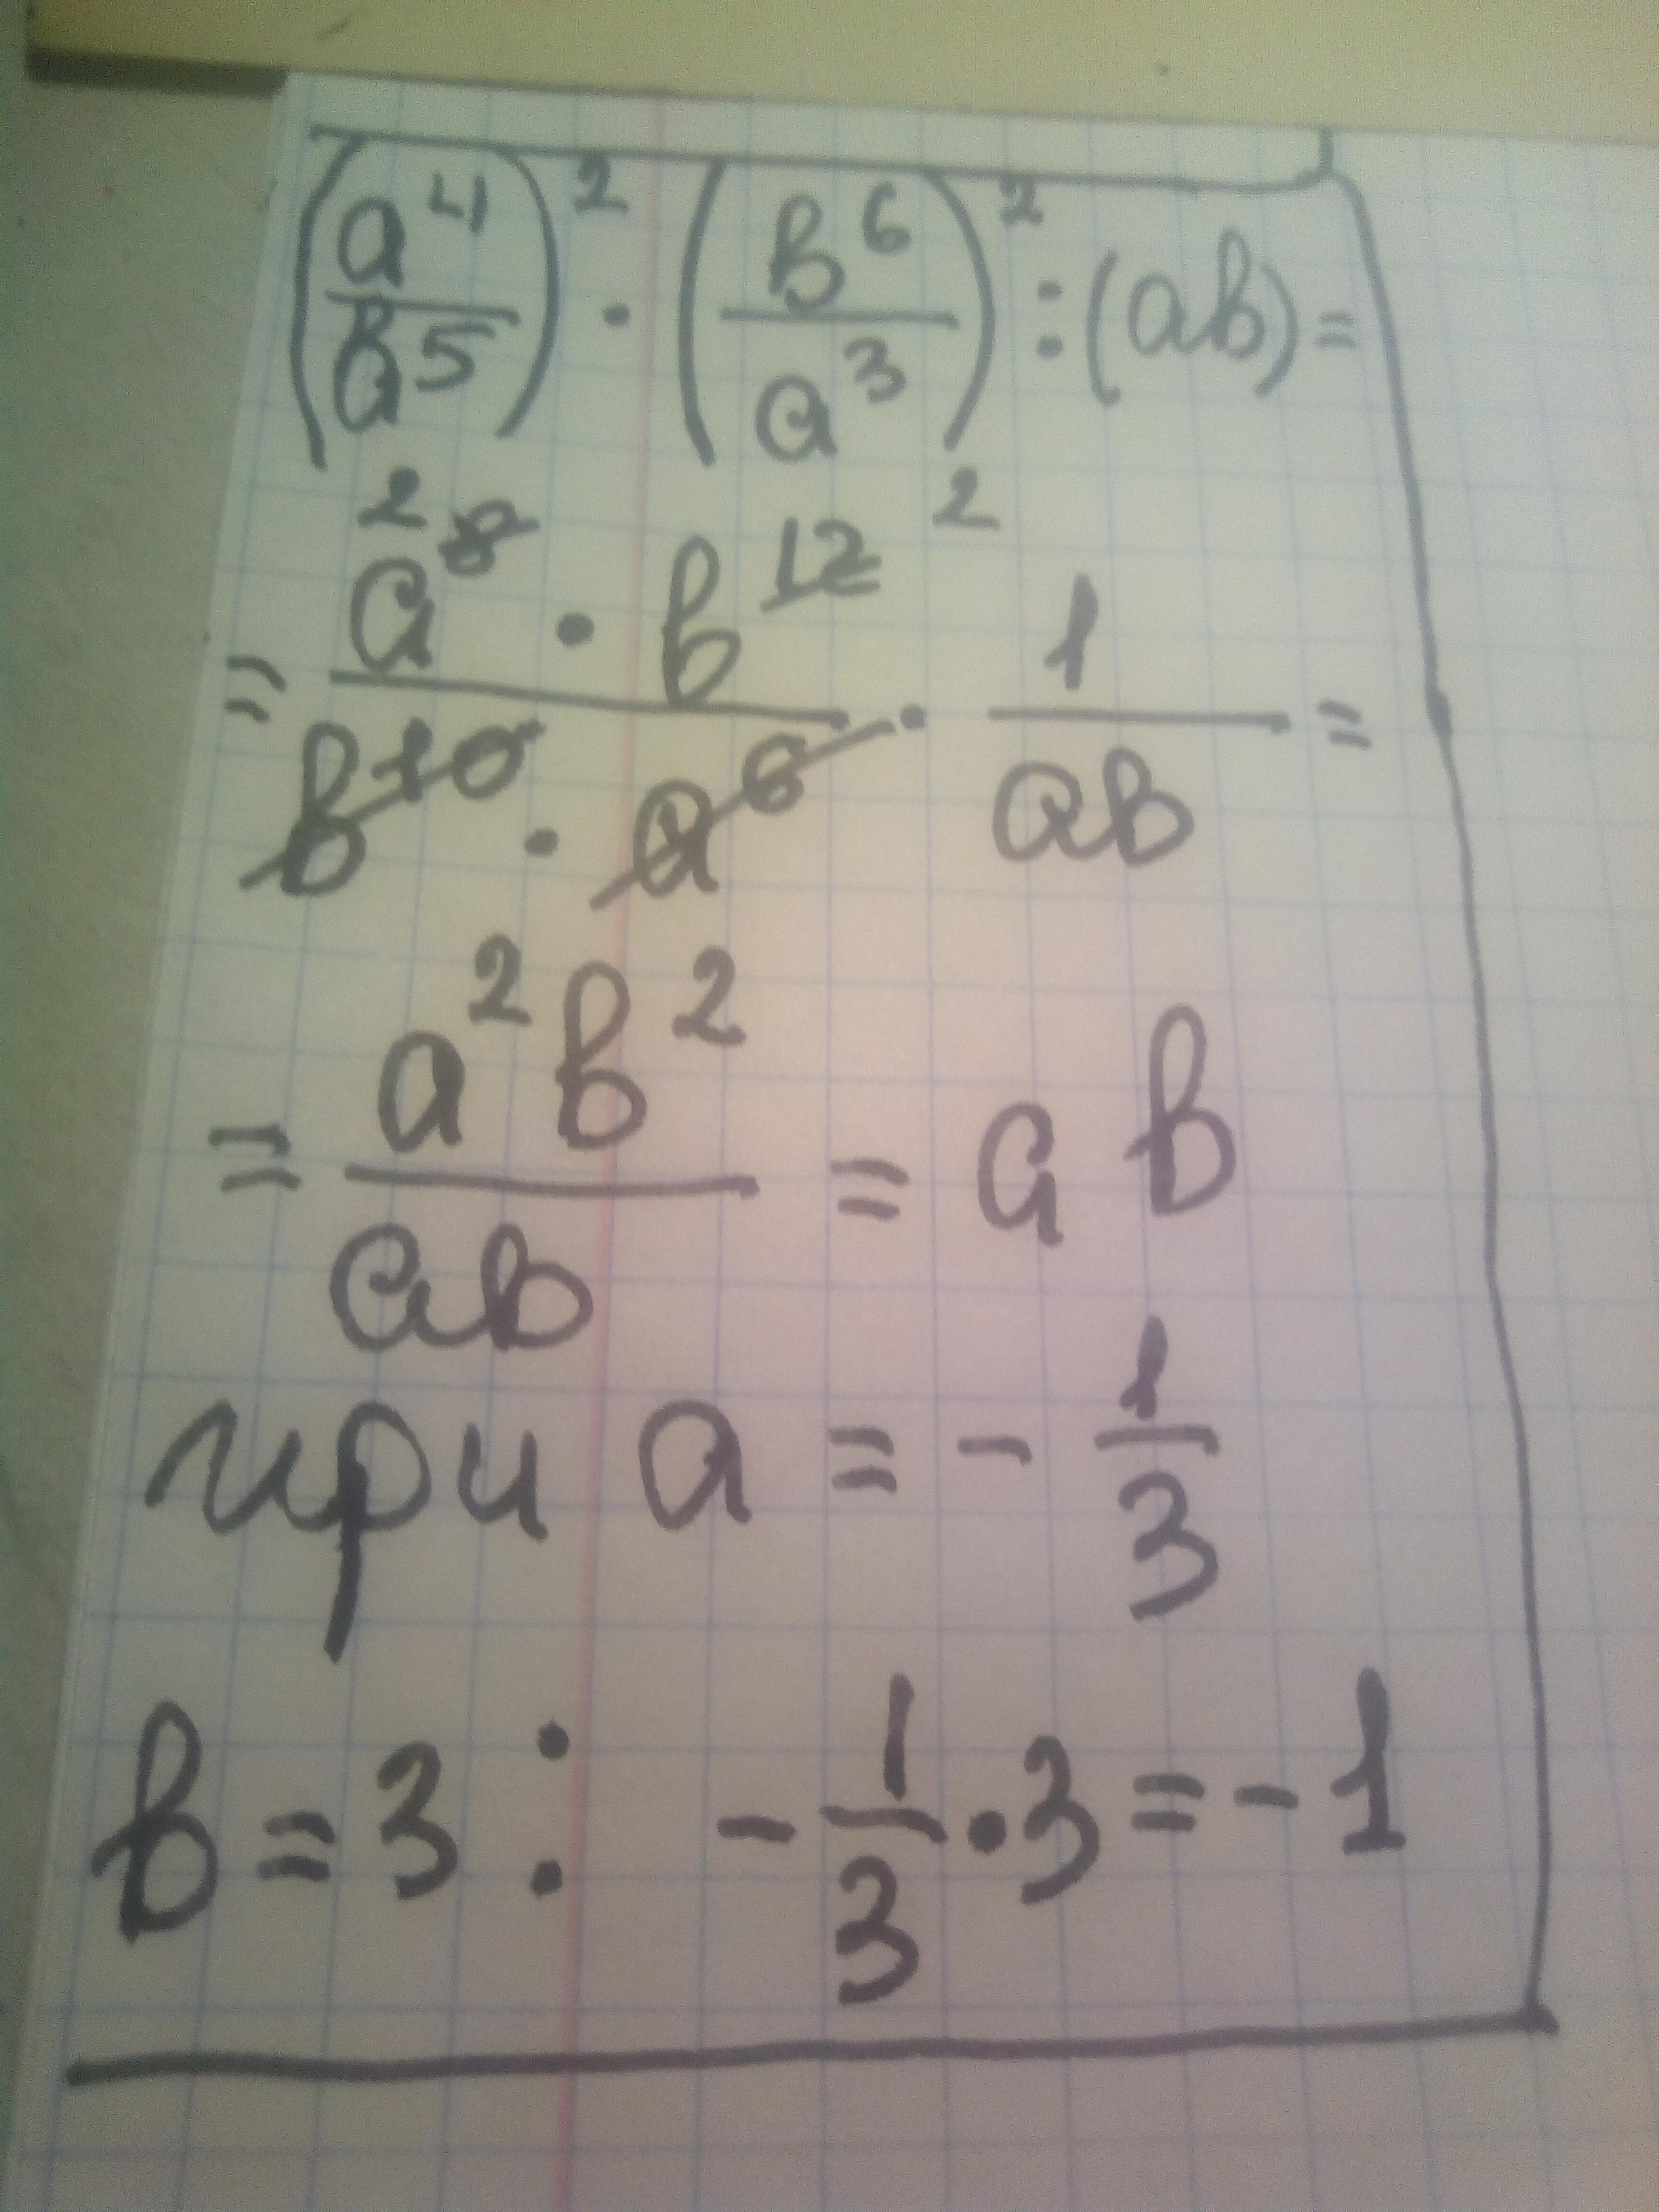 (a⁴/b⁵)² · (b⁶/a³)² : (ab) =
= (a⁸ · b¹²)/(b¹⁰ · a⁶) · 1/(ab) =
= a²b²/(ab) = a b
при a = - 1/3
b = 3 : - 1/3 · 3 = - 1